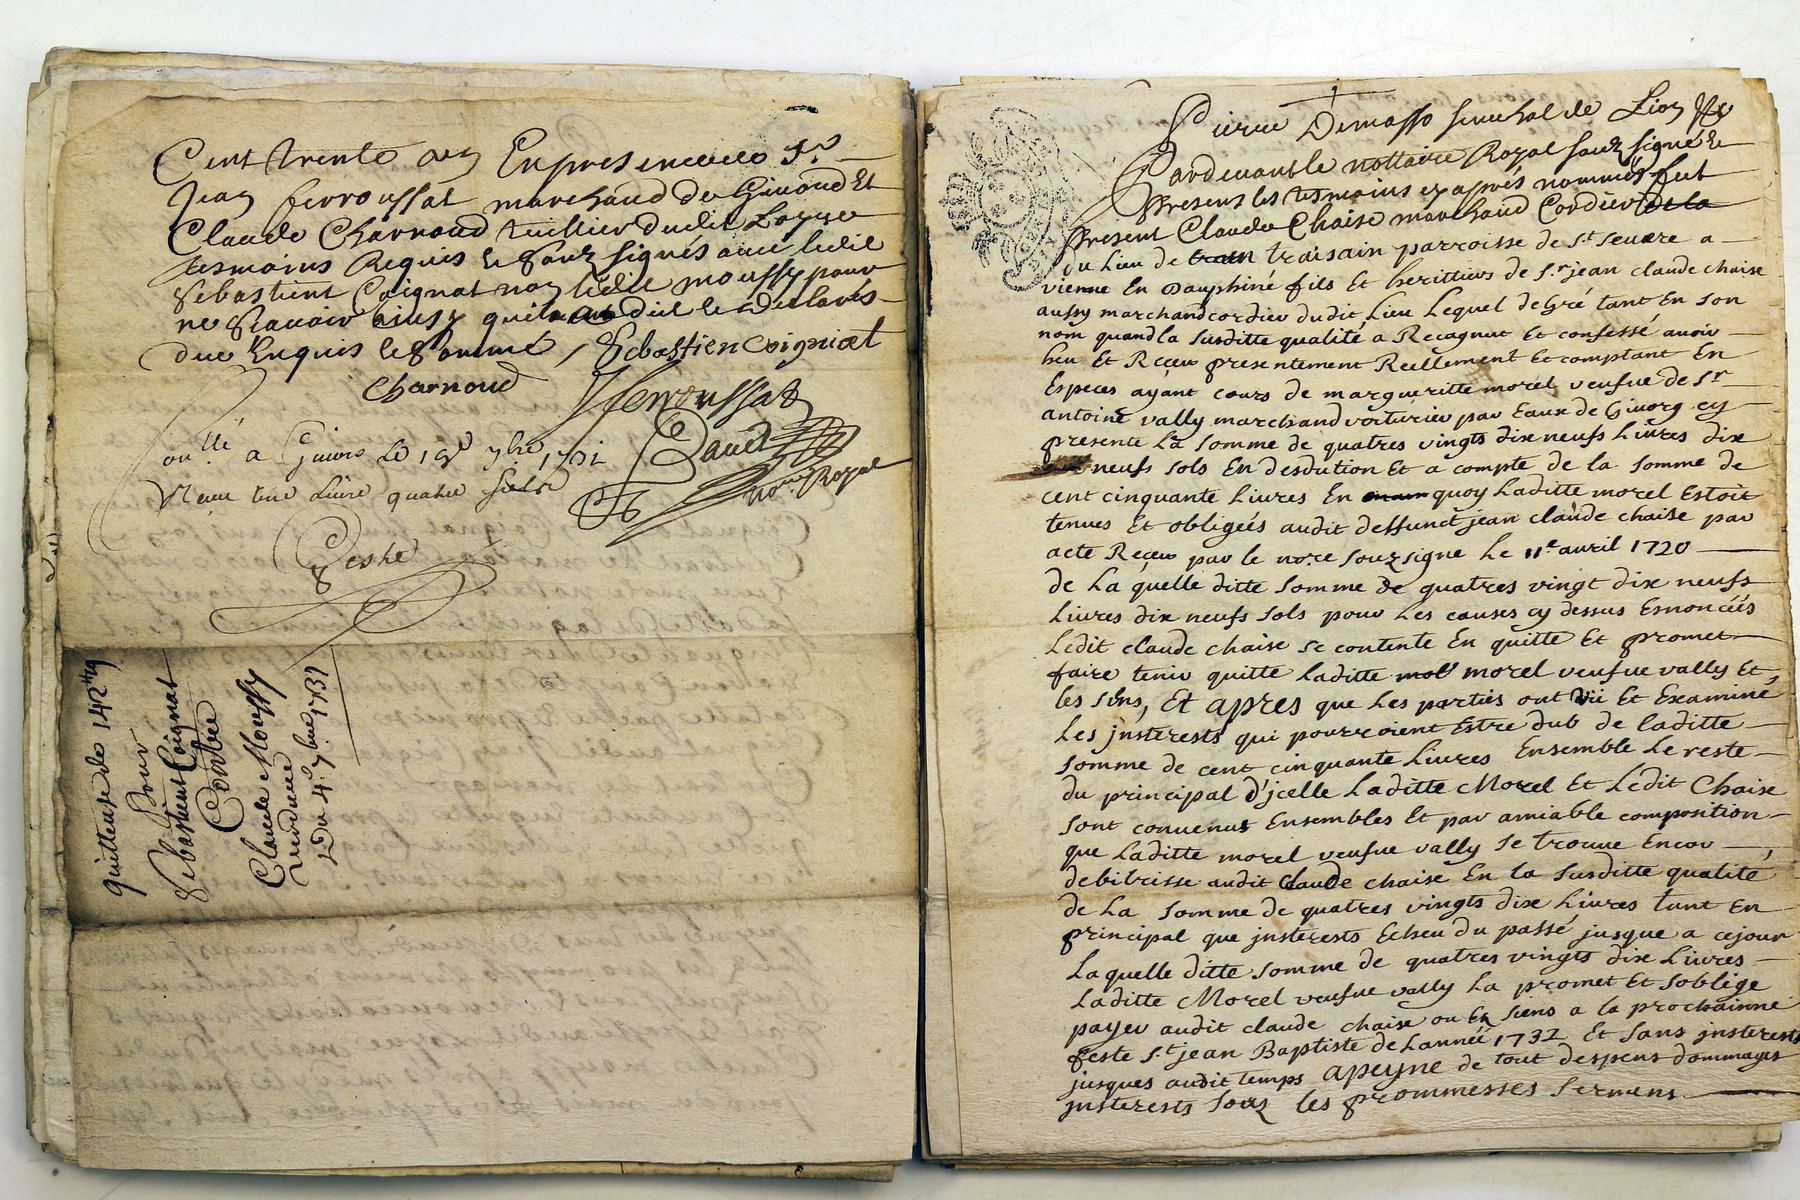 Cent trente ung En presence de Sr
Jean ferroussat marchand de Givord Et
Claude Charnoud tuillier dudit Loyre
tesmoins Requis et souzsignés avec ledit
Sebastient Coignat non ledit moussy pour
ne sçavoir ainsy quil a dit et declaré
due Enquis et sommé / Sebastien coigniat
charnoud
fferoussat
conllé a Givors le 19e 7bre 1731
Reçu une Livre quatre sols
David
nore Royal
Geshe
quittense de 142ll 19
pour
Sebastient Coignat
Contre
Claude Moussy
Verdune
Du 4e 7bre 1731
Pierre Demasso senechal de Lion
Pardevant le nottaire Royal souz signé Et
Presens les tesmoins cy aprés nommés fut
Present Claude Chaise marchand Cordier de la
du Lieu de train traisain parroisse de St severe a
vienne En Dauphiné fils Et herittiers de Sr jean claude chaise
aussy marchand cordier dudit Lieu Lequel de Gré tant En son
nom quand la susditte qualité a Recognut Et confessé avoir
heu Et Reçeu presentement Reellement Et comptant En
Especes ayant cours de margueritte morel veufue de Sr
antoine vally marchand voiturier par Eaux de Givorg cy
presente La somme de quatres vingts dix neufs Livres dix
neufs sols En desdution Et a compte de la somme de
cent cinquante Livres En quoy Laditte morel Estoit
tenues Et obligeés audit deffunct jean claude chaise par
acte Reçeu par le nore souzsigne Le 11e avril 1720
de La quelle ditte somme de quatres vingt dix neufs
Livres dix neufs sols pour Les causes cy dessus Esnoncéés
Ledit claude chaise se contente En quitte Et promet
faire tenir quitte Laditte mol morel veufue vally Et
les sens, Et apres que Les parties ont vü Et Examiné
Les jnsterests qui pourroient Estre dub de laditte
somme de cent cinquante Livres Ensemble Le reste
du principal d'jcelle Laditte Morel Et Ledit Chaise
sont convenus Ensembles Et par amiable composition
que Laditte morel veufue vally se trouve Encor
debitrisse audit Claude chaise En la susditte qualité
de La somme de quatres vingts dix Livres tant En
principal que jnsterests Echeu du passé jusque a cejour
Laquelle ditte somme de quatres vingts dix Livres
Laditte Morel veufue vally La promet Et soblige
payer audit claude chaise ou Es siens a la prochainne
feste St jean Baptiste de Lannéé 1732 Et sans jnsterests
jusques audit temps apeyne de tout despens dommages
jnsterests souz les prommesses sermens